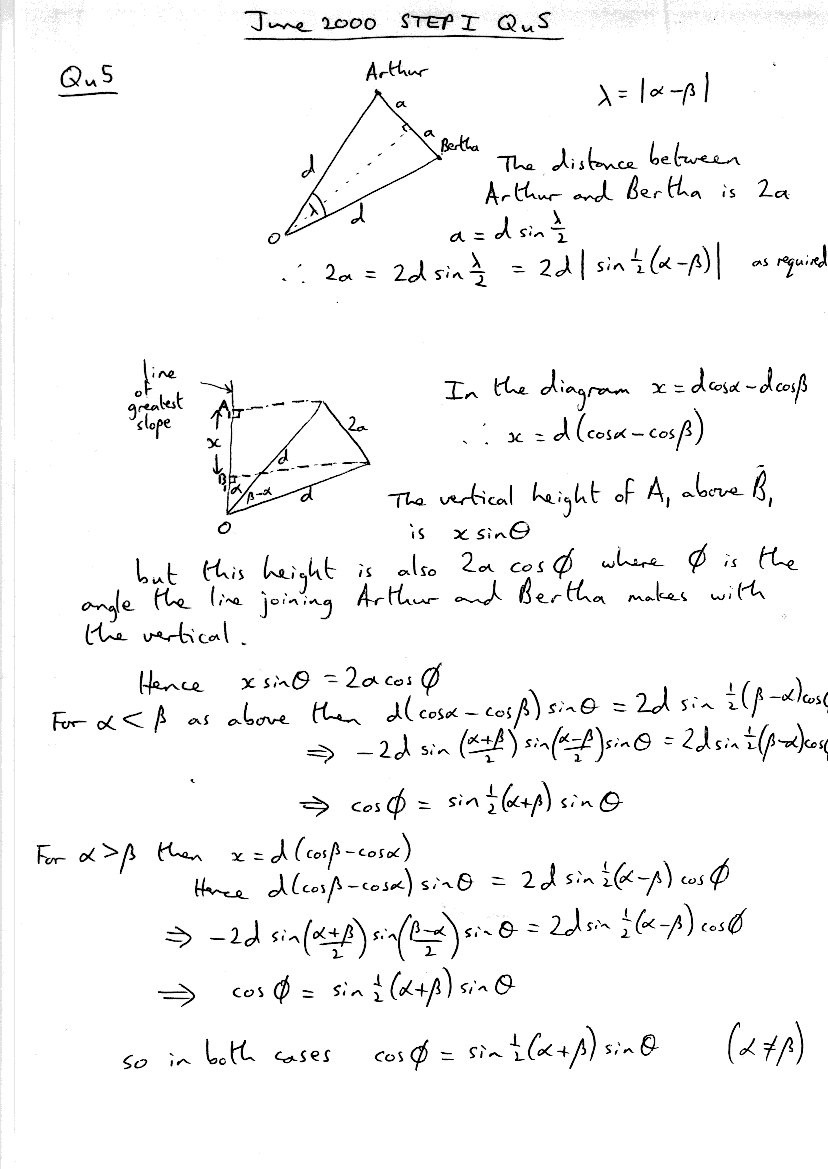 June 2000 STEP I Qu 5
Qu 5
Arthur
a
a
Bertha
d
λ
d
O
λ = |α-β|
The distance between
Arthur and Bertha is 2a
a = d sin λ/2
∴ 2a = 2d sin λ/2 = 2d | sin ½(α-β)| as required
line
of
greatest
slope
A₁
x
B₁
α
β-α
d
d
2a
O
In the diagram x = dcosα - dcosβ
∴ x = d(cosα - cosβ)
The vertical height of A₁ above B₁
is x sinθ
but this height is also 2a cos ϕ where ϕ is the
angle the line joining Arthur and Bertha makes with
the vertical.
Hence x sinθ = 2a cos ϕ
For α < β as above then d(cosα - cosβ) sinθ = 2d sin ½(β-α)cos
⇒ -2d sin (α+β/2) sin(α-β/2) sinθ = 2d sin ½(β-α)cos
⇒ cosϕ = sin ½(α+β) sin θ
For α > β then x = d(cosβ - cosα)
Hence d(cosβ - cosα) sinθ = 2d sin ½(α-β) cos ϕ
⇒ -2d sin(α+β/2) sin(β-α/2) sin θ = 2d sin ½(α-β) cosϕ
⇒ cos ϕ = sin ½(α+β) sin θ
so in both cases cosϕ = sin ½(α+β) sin θ (α ≠ β)